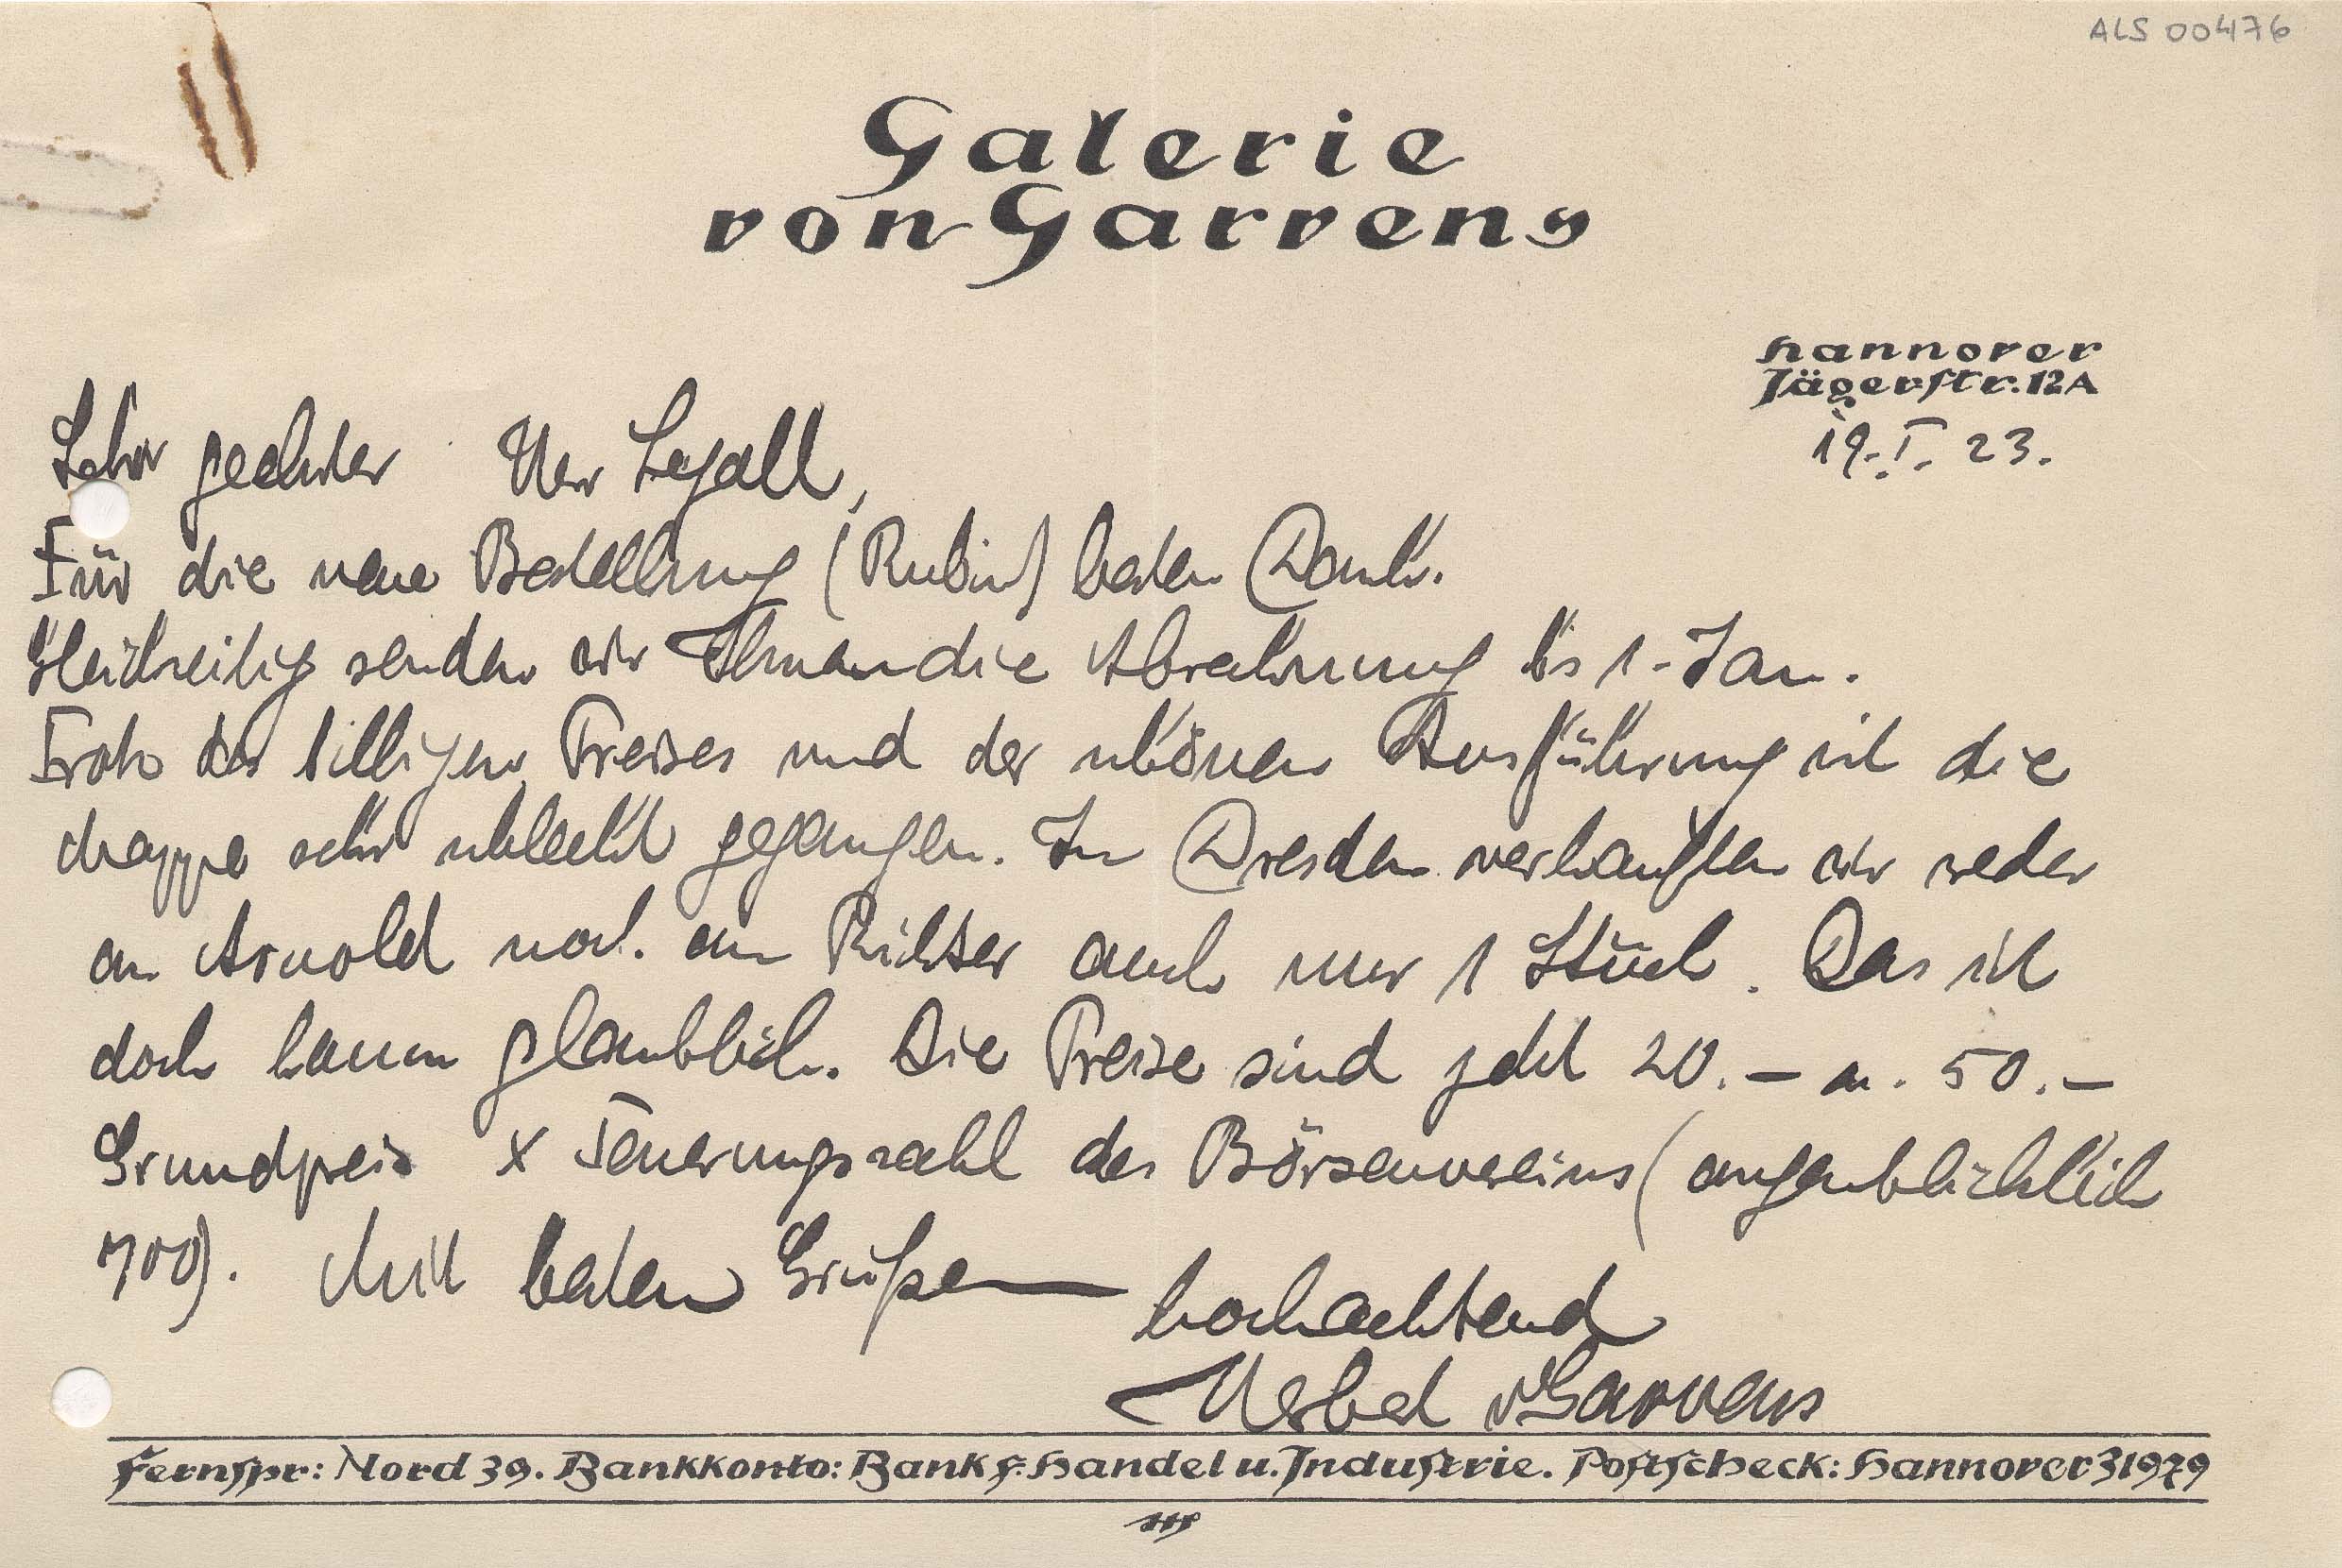 ALS 00476
Galerie
von Garvens
Hannover
Jägerstr. 12A
19. I. 23.
Sehr geehrter Herr Segall,
Für die neue Bestellung (Rubin) besten Dank.
Gleichzeitig senden wir Ihnen die Abrechnung bis 1. Jan.
Trotz des billigen Preises und der schönen Ausführung ist die
Mappe sehr schlecht gegangen. In Dresden verkauften wir weder
an Arnold noch an Richter auch nur 1 Stück. Das ist
doch kaum glaublich. Die Preise sind jetzt 20.– u. 50.–
Grundpreis x Teuerungszahl des Börsenvereins (augenblicklich
700). Mit besten Grüßen
hochachtend
Herbert vGarvens
Fernspr: Nord 39. Bankkonto: Bank f. Handel u. Industrie. Postscheck: Hannover 31979